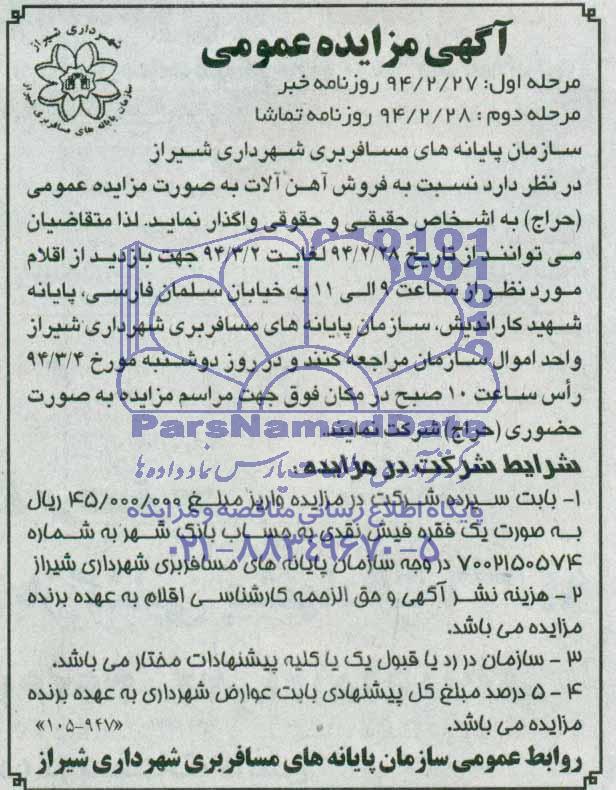 شهرداری شیراز
سازمان پایانه های مسافربری شیراز
آگهی مزایده عمومی
مرحله اول: ۹۴/۲/۲۷ روزنامه خبر
مرحله دوم: ۹۴/۲/۲۸ روزنامه تماشا
سازمان پایانه های مسافربری شهرداری شیراز
در نظر دارد نسبت به فروش آهن آلات به صورت مزایده عمومی
(حراج) به اشخاص حقیقی و حقوقی واگذار نماید. لذا متقاضیان
می توانند از تاریخ ۹۴/۲/۲۸ لغایت ۹۴/۳/۲ جهت بازدید از اقلام
مورد نظر از ساعت ۹ الی ۱۱ به خیابان سلمان فارسی، پایانه
شهید کاراندیش، سازمان پایانه های مسافربری شهرداری شیراز
واحد اموال سازمان مراجعه کنند و در روز دوشنبه مورخ ۹۴/۳/۴
رأس ساعت ۱۰ صبح در مکان فوق جهت مراسم مزایده به صورت
حضوری (حراج) شرکت نمایند.
ParsNamadData
شرایط شرکت در مزایده:
۱- بابت سپرده شرکت در مزایده واریز مبلغ ۴۵/۰۰۰/۰۰۰ ریال
پایگاه اطلاع رسانی مناقصه و مزایده
به صورت یک فقره فیش نقدی به حساب بانک شهر به شماره
۰۲۱-۸۸۳۴۹۶۷۰-۵
۷۰۰۲۱۵۰۵۷۴ در وجه سازمان پایانه های مسافربری شهرداری شیراز
۲- هزینه نشر آگهی و حق الزحمه کارشناسی اقلام به عهده برنده
مزایده می باشد.
۳- سازمان در رد یا قبول یک یا کلیه پیشنهادات مختار می باشد.
۴- ۵ درصد مبلغ کل پیشنهادی بابت عوارض شهرداری به عهده برنده
مزایده می باشد. «۱۰۵-۹۴۷»
روابط عمومی سازمان پایانه های مسافربری شهرداری شیراز